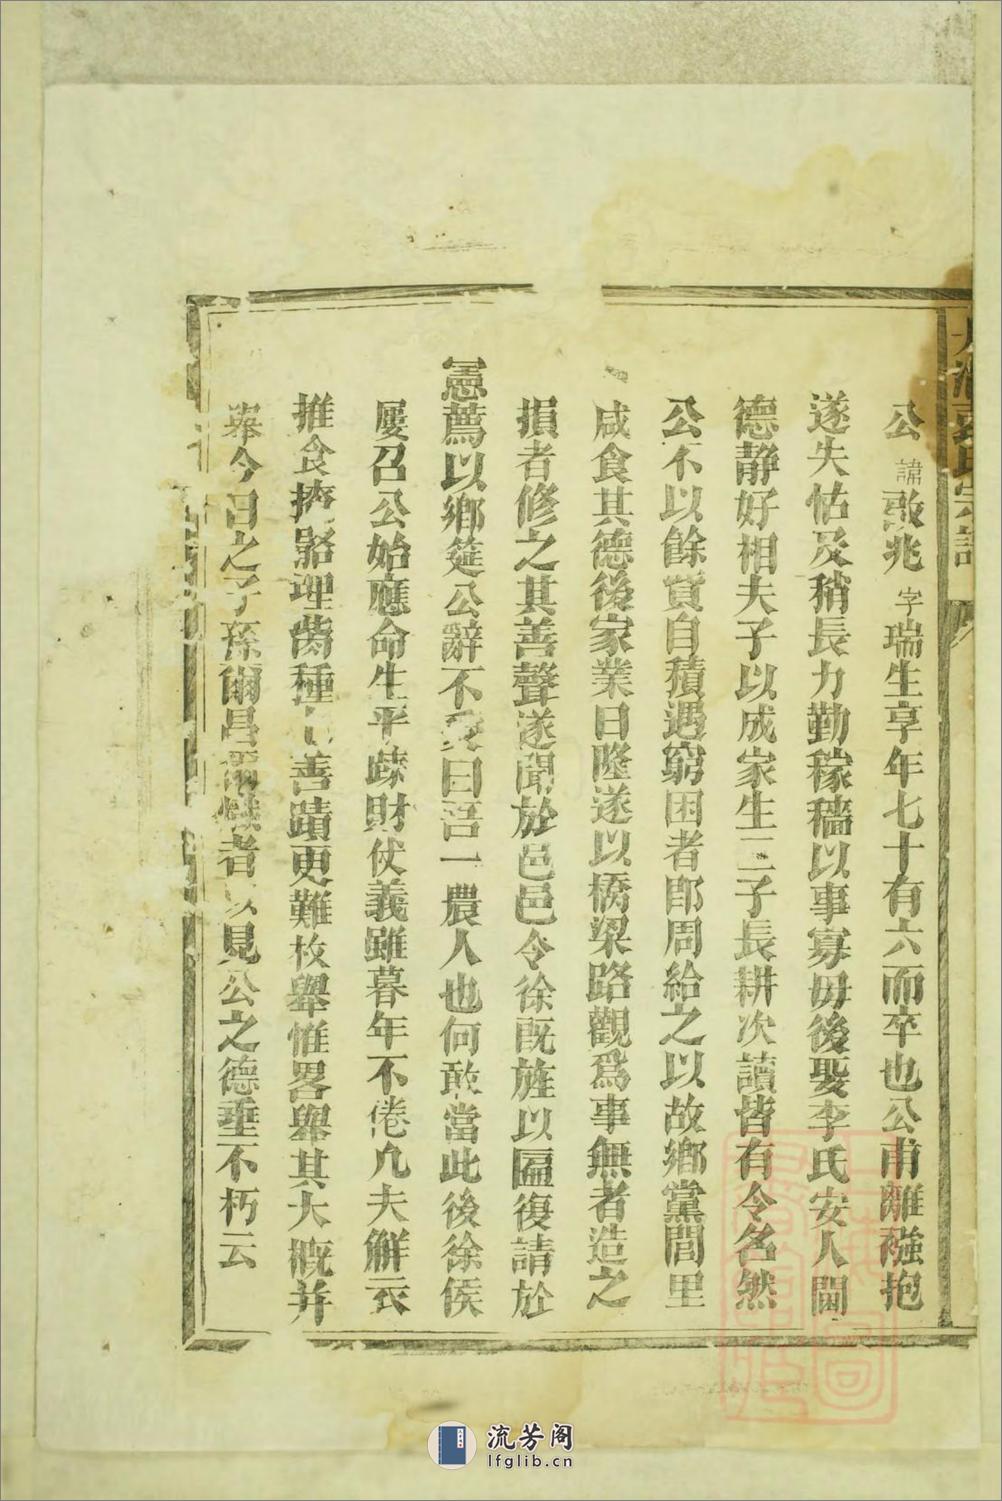 公諱敬兆字瑞生享年七十有六而卒也公甫離襁抱
遂失怙及稍長力勤稼穡以事寡毋後娶李氏安人閫
德静好相夫子以成家生三子長耕次讀皆有令名然
公不以餘貲自積遇窮困者即周給之以故鄉黨閭里
咸食其德後家業日隆遂以橋梁路觀爲事無者造之
損者修之其善聲遂聞於邑邑令徐既旌以匾復請於
憲薦以鄉筵公辭不受曰吾一農人也何敢當此後徐侯
屢召公始應命生平疎財仗義雖暮年不倦凢夫觧衣
推食擠骼理胔種善蹟更難枚舉惟畧舉其大槪并
今日之子孫爾昌爾者以見公之德垂不朽云
氏宗譜
流芳阁
lfglib.cn